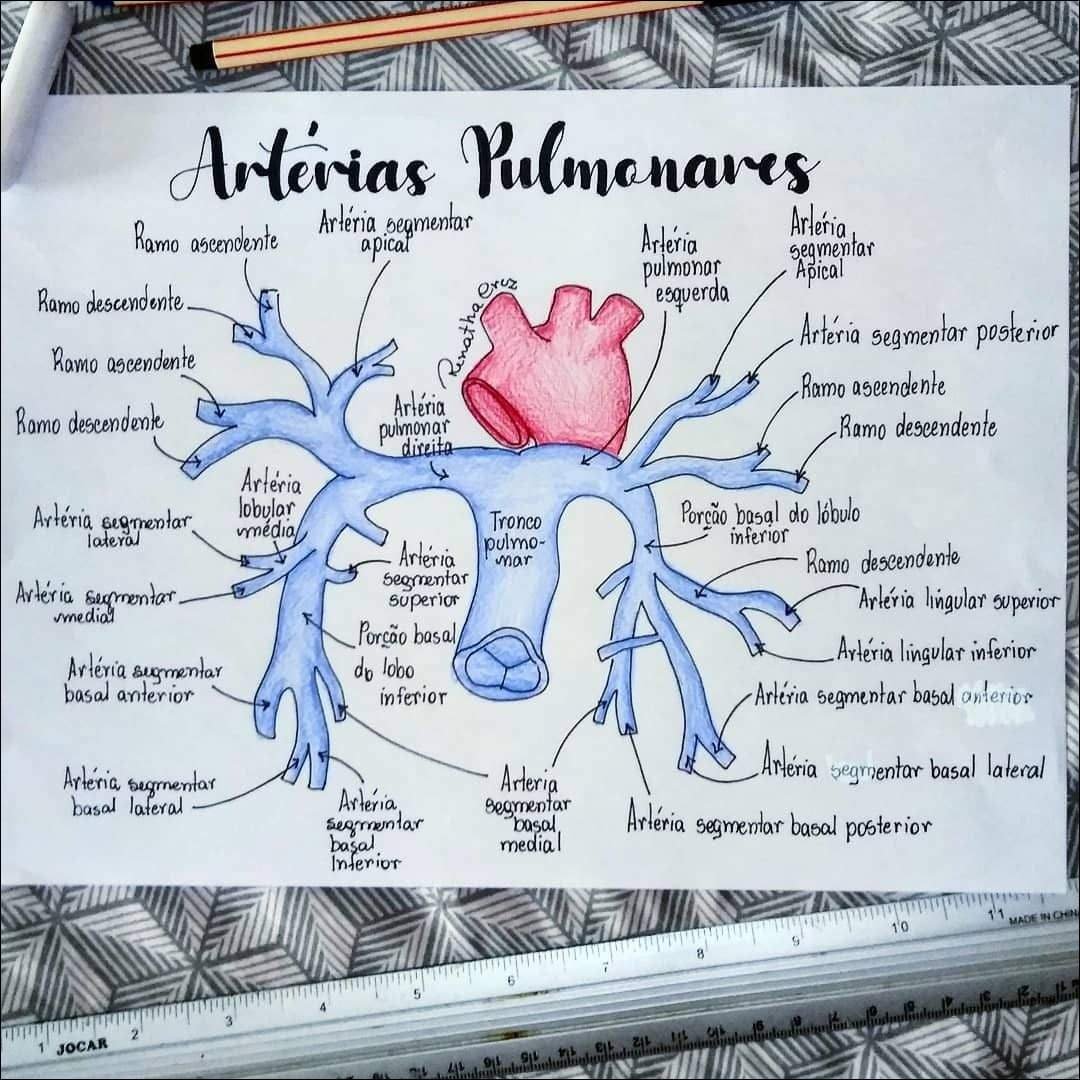 Artérias Pulmonares
Ramo ascendente
Artéria segmentar
apical
Artéria
pulmonar
esquerda
Artéria
segmentar
Apical
Ramo descendente
Renatha Cruz
Artéria segmentar posterior
Ramo ascendente
Ramo ascendente
Ramo descendente
Artéria
pulmonar
direita
Ramo descendente
Artéria
lobular
média
Artéria segmentar
lateral
Tronco
pulmo-
nar
Porção basal do lóbulo
inferior
Artéria
segmentar
superior
Ramo descendente
Artéria segmentar
medial
Artéria lingular superior
Porção basal
do lobo
inferior
Artéria lingular inferior
Artéria segmentar
basal anterior
Artéria segmentar basal anterior
Artéria segmentar basal lateral
Artéria segmentar
basal lateral
Artéria
segmentar
basal
Inferior
Arteria
segmentar
basal
medial
Artéria segmentar basal posterior
1 2 3 4 5 6 7 8 9 10 11 MADE IN CHINA
JOCAR